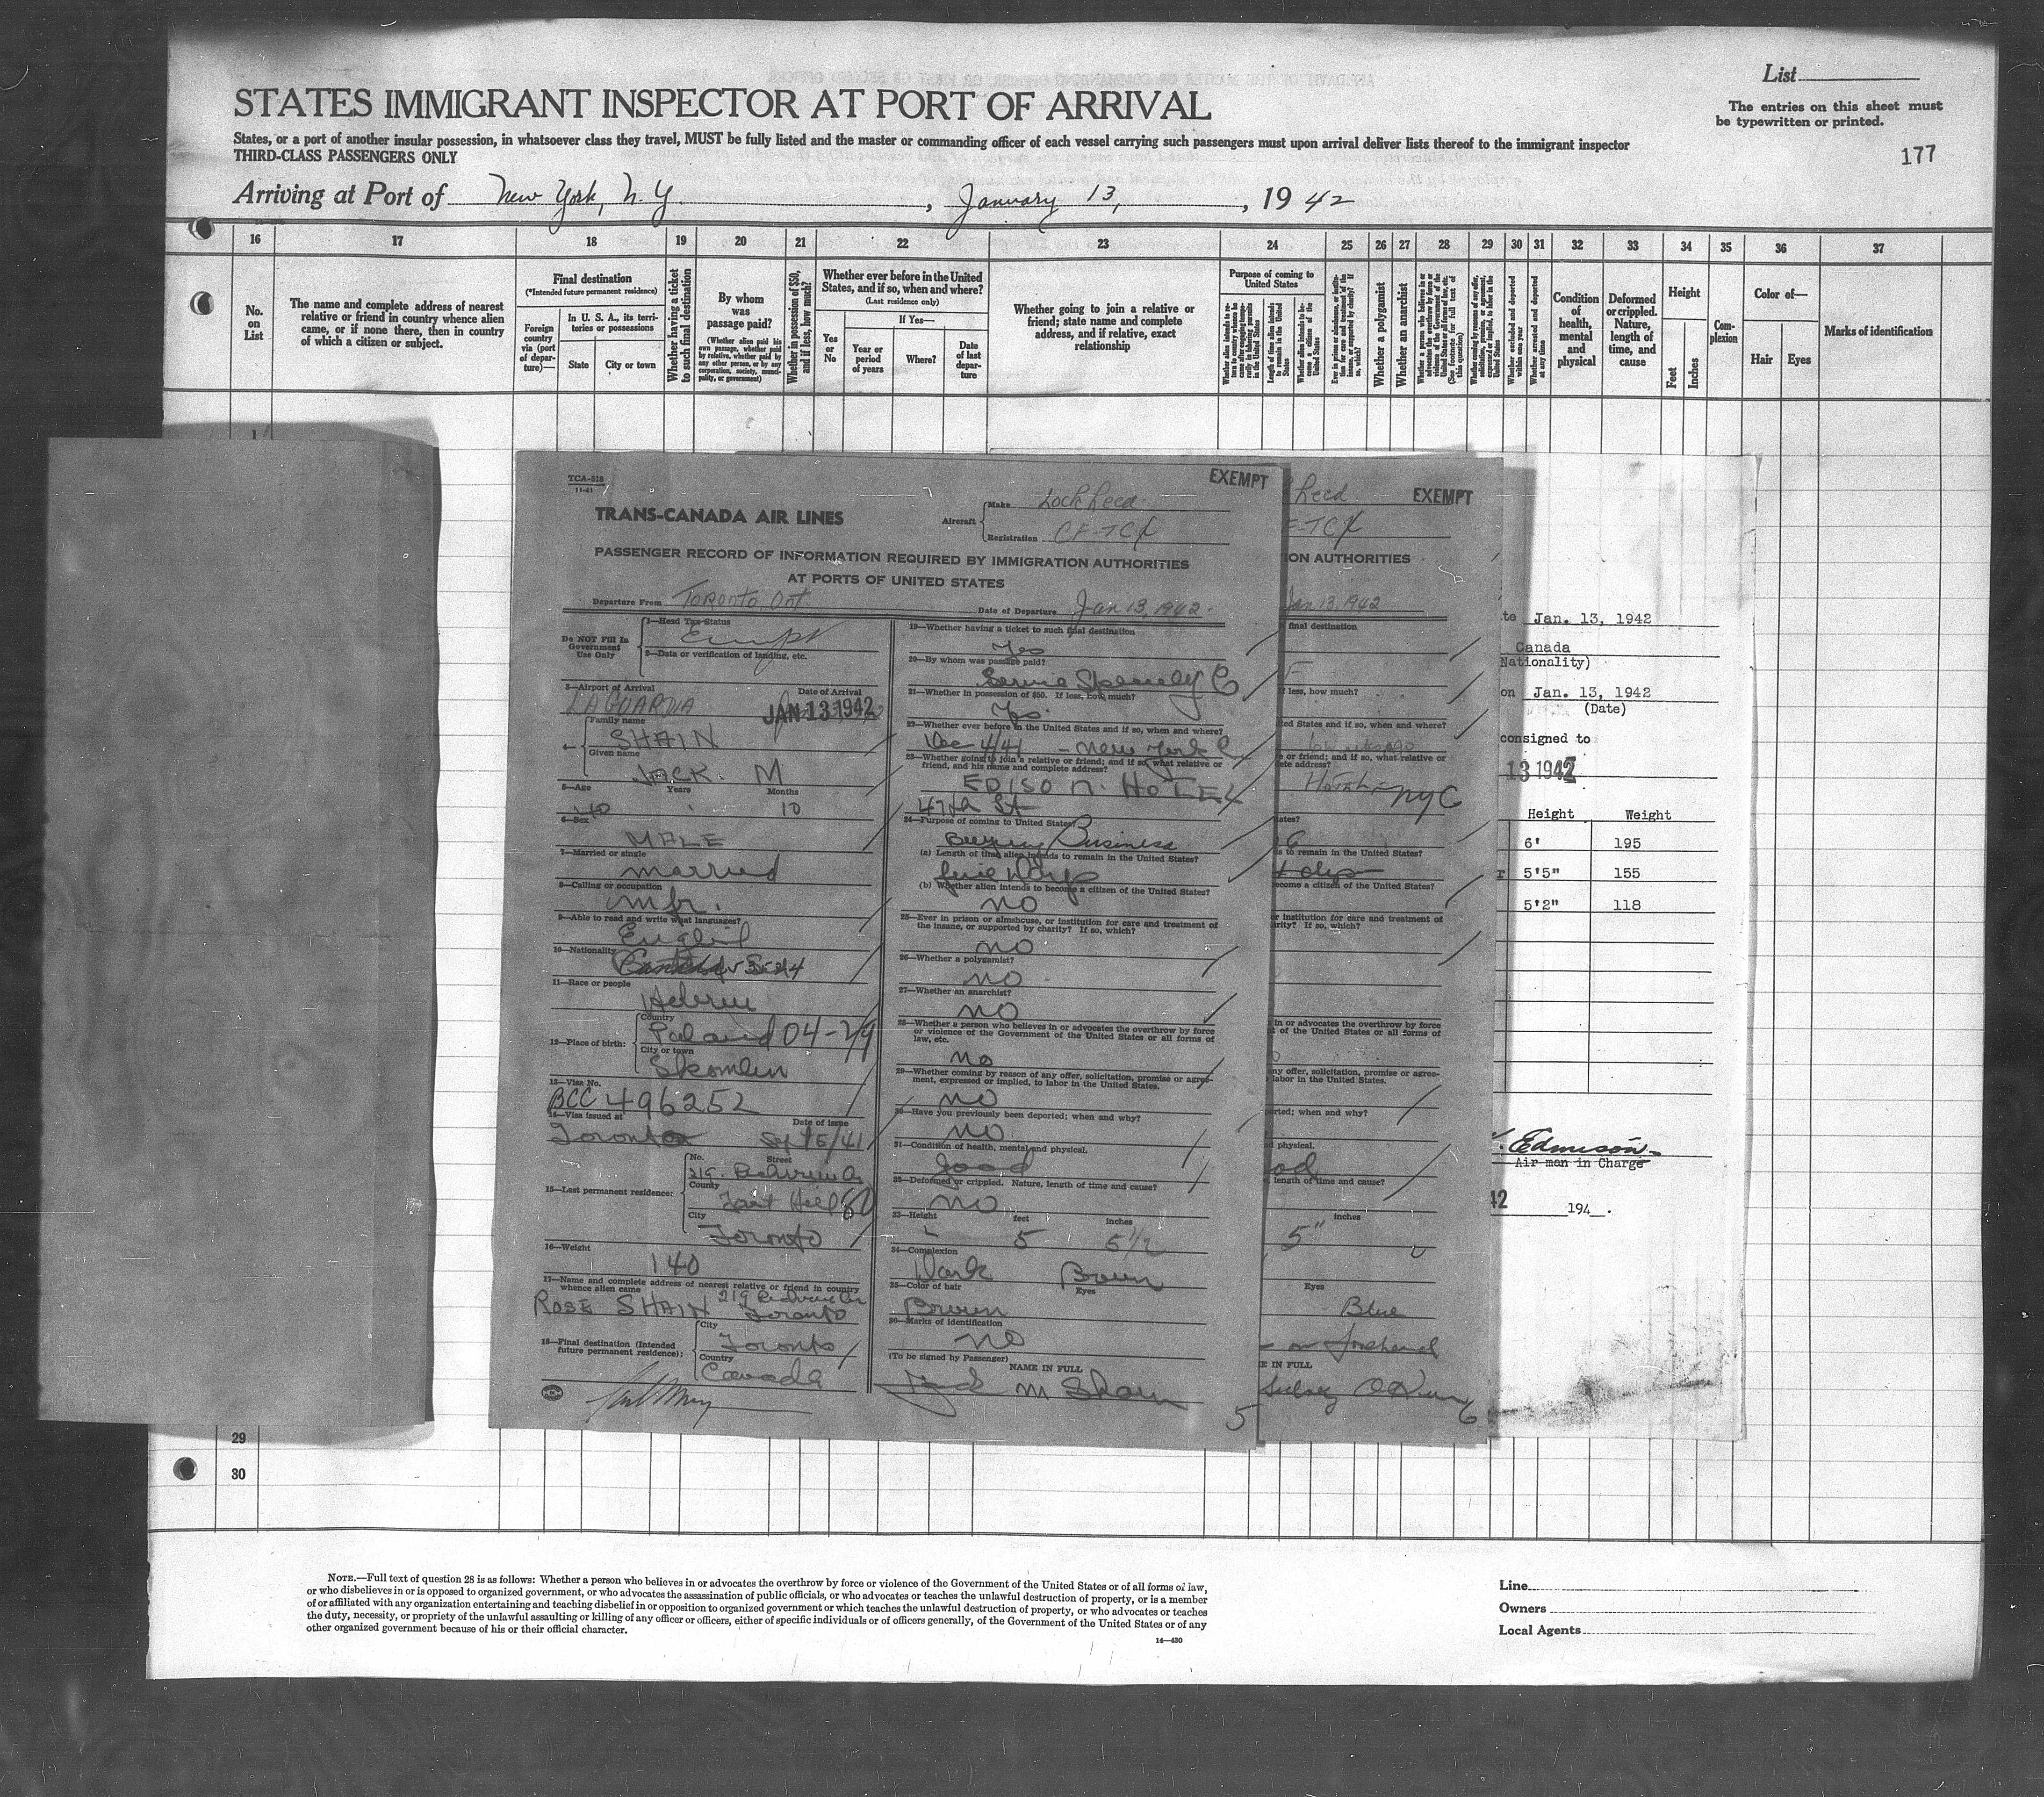 List
The entries on this sheet must
be typewritten or printed.
177
STATES IMMIGRANT INSPECTOR AT PORT OF ARRIVAL
States, or a port of another insular possession, in whatsoever class they travel, MUST be fully listed and the master or commanding officer of each vessel carrying such passengers must upon arrival deliver lists thereof to the immigrant inspector
THIRD-CLASS PASSENGERS ONLY
Arriving at Port of New York, N.Y., January 13, 1942
16 17 18 19 20 21 22 23 24 25 26 27 28 29 30 31 32 33 34 35 36 37
No. on List
The name and complete address of nearest
relative or friend in country whence alien
came, or if none there, then in country
of which a citizen or subject.
Final destination
(*Intended future permanent residence)
Foreign country via (port of departure)—
In U. S. A., its territories or possessions
State
City or town
Whether having a ticket to such final destination
By whom was passage paid?
(Whether alien paid his own passage, whether paid by relative, whether paid by any other person, or by any corporation, society, municipality, or government)
Whether in possession of $50, and if less, how much?
Whether ever before in the United
States, and if so, when and where?
(Last residence only)
Yes or No
If Yes—
Year or period of years
Where?
Date of last departure
Whether going to join a relative or
friend; state name and complete
address, and if relative, exact
relationship
Purpose of coming to
United States
Whether a polygamist
Whether an anarchist
Condition of health, mental and physical
Deformed or crippled. Nature, length of time, and cause
Height
Feet
Inches
Complexion
Color of—
Hair
Eyes
Marks of identification
TCA-518
11-41
EXEMPT
TRANS-CANADA AIR LINES
Aircraft
Make Lockheed
Registration CF-TCX
PASSENGER RECORD OF INFORMATION REQUIRED BY IMMIGRATION AUTHORITIES
AT PORTS OF UNITED STATES
Departure From Toronto, Ont
Date of Departure Jan 13, 1942.
Do NOT Fill In
Government
Use Only
1—Head Tax Status
Exempt
2—Data or verification of landing, etc.
3—Airport of Arrival
Date of Arrival
LAGUARDIA JAN 13 1942
4—
Family name
SHAIN
Given name
JACK. M
5—Age
Years
Months
40 10
6—Sex
MALE
7—Married or single
married
8—Calling or occupation
mfr.
9—Able to read and write what languages?
English
10—Nationality
11—Race or people
Hebrew
12—Place of birth:
Country
Poland 04-29
City or town
13—Visa No.
BCC 496252
14—Visa issued at
Date of issue
Toronto
15—Last permanent residence:
No.
Street
219.
County
City
Toronto
16—Weight
140
17—Name and complete address of nearest relative or friend in country
whence alien came
ROSE SHAIN 219
Toronto
18—Final destination (Intended
future permanent residence):
City
Toronto
Country
Canada
19—Whether having a ticket to such final destination
Yes
20—By whom was passage paid?
21—Whether in possession of $50. If less, how much?
Yes.
22—Whether ever before in the United States and if so, when and where?
Dec 4/41 - New York
23—Whether going to join a relative or friend; and if so, what relative or
friend, and his name and complete address?
EDISON. HOTEL
47th St
24—Purpose of coming to United States?
Buying Business
(a) Length of time alien intends to remain in the United States?
five days
(b) Whether alien intends to become a citizen of the United States?
no
25—Ever in prison or almshouse, or institution for care and treatment of
the insane, or supported by charity? If so, which?
no
26—Whether a polygamist?
no
27—Whether an anarchist?
no
28—Whether a person who believes in or advocates the overthrow by force
or violence of the Government of the United States or all forms of
law, etc.
no
29—Whether coming by reason of any offer, solicitation, promise or agree-
ment, expressed or implied, to labor in the United States.
no
30—Have you previously been deported; when and why?
no
31—Condition of health, mental and physical.
good
32—Deformed or crippled. Nature, length of time and cause?
no
33—Height
feet
inches
5 5½
34—Complexion
Dark
Brown
35—Color of hair
Eyes
Brown
36—Marks of identification
no
(To be signed by Passenger)
NAME IN FULL
Jack M Shain
5
EXEMPT
ION AUTHORITIES
Jan 13, 1942
final destination
f less, how much?
ted States and if so, when and where?
e or friend; and if so, what relative or
ete address?
Hotel - NYC
ates?
s to remain in the United States?
ecome a citizen of the United States?
r institution for care and treatment of
arity? If so, which?
in or advocates the overthrow by force
t of the United States or all forms of
ny offer, solicitation, promise or agree-
labor in the United States.
orted; when and why?
d physical.
length of time and cause?
inches
5"
Eyes
Blue
on forehead
E IN FULL
6
te Jan. 13, 1942
Canada
Nationality)
on Jan. 13, 1942
(Date)
consigned to
13 1942
Height Weight
6' 195
5'5" 155
5'2" 118
Edmison
Air man in Charge
42 194 .
29
30
NOTE.—Full text of question 28 is as follows: Whether a person who believes in or advocates the overthrow by force or violence of the Government of the United States or of all forms of law,
or who disbelieves in or is opposed to organized government, or who advocates the assassination of public officials, or who advocates or teaches the unlawful destruction of property, or is a member
of or affiliated with any organization entertaining and teaching disbelief in or opposition to organized government or which teaches the unlawful destruction of property, or who advocates or teaches
the duty, necessity, or propriety of the unlawful assaulting or killing of any officer or officers, either of specific individuals or of officers generally, of the Government of the United States or of any
other organized government because of his or their official character.
14—430
Line
Owners
Local Agents